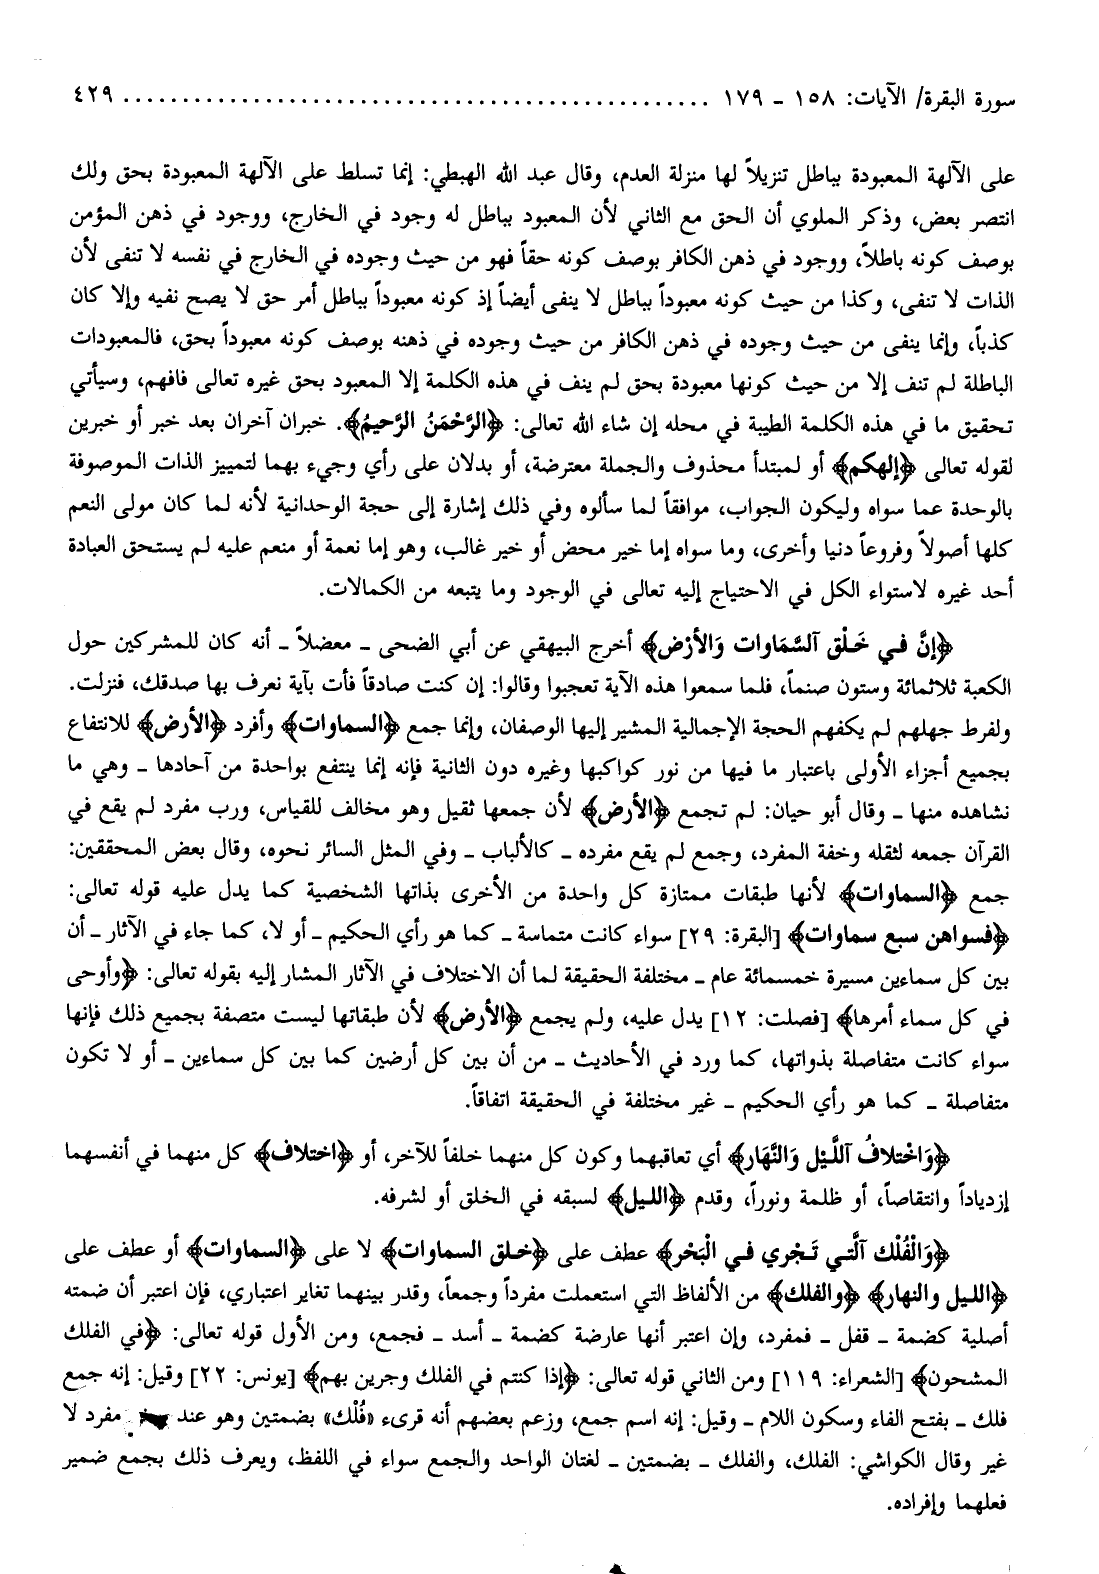 سورة البقرة/ الآيات: ١٥٨ ـ ١٧٩ ................................................ ٤٢٩
على الآلهة المعبودة بباطل تنزيلاً لها منزلة العدم، وقال عبد الله الهبطي: إنما تسلط على الآلهة المعبودة بحق ولك
انتصر بعض، وذكر الملوي أن الحق مع الثاني لأن المعبود بباطل له وجود في الخارج، ووجود في ذهن المؤمن
بوصف كونه باطلاً، ووجود في ذهن الكافر بوصف كونه حقاً فهو من حيث وجوده في الخارج في نفسه لا تنفى لأن
الذات لا تنفى، وكذا من حيث كونه معبوداً بباطل لا ينفى أيضاً إذ كونه معبوداً بباطل أمر حق لا يصح نفيه وإلا كان
كذباً، وإنما ينفى من حيث وجوده في ذهن الكافر من حيث وجوده في ذهنه بوصف كونه معبوداً بحق، فالمعبودات
الباطلة لم تنف إلا من حيث كونها معبودة بحق لم ينف في هذه الكلمة إلا المعبود بحق غيره تعالى فافهم، وسيأتي
تحقيق ما في هذه الكلمة الطيبة في محله إن شاء الله تعالى: ﴿الرَّحْمَنُ الرَّحيمُ﴾. خبران آخران بعد خبر أو خبرين
لقوله تعالى ﴿إلهكم﴾ أو لمبتدأ محذوف والجملة معترضة، أو بدلان على رأي وجيء بهما لتمييز الذات الموصوفة
بالوحدة عما سواه وليكون الجواب، موافقاً لما سألوه وفي ذلك إشارة إلى حجة الوحدانية لأنه لما كان مولى النعم
كلها أصولاً وفروعاً دنيا وأخرى، وما سواه إما خير محض أو خير غالب، وهو إما نعمة أو منعم عليه لم يستحق العبادة
أحد غيره لاستواء الكل في الاحتياج إليه تعالى في الوجود وما يتبعه من الكمالات.
﴿إنَّ في خَلْق آلسَّمَاوات وَالأرْض﴾ أخرج البيهقي عن أبي الضحى ـ معضلاً ـ أنه كان للمشركين حول
الكعبة ثلاثمائة وستون صنماً، فلما سمعوا هذه الآية تعجبوا وقالوا: إن كنت صادقاً فأت بآية نعرف بها صدقك، فنزلت.
ولفرط جهلهم لم يكفهم الحجة الإجمالية المشير إليها الوصفان، وإنما جمع ﴿السماوات﴾ وأفرد ﴿الأرض﴾ للانتفاع
بجميع أجزاء الأولى باعتبار ما فيها من نور كواكبها وغيره دون الثانية فإنه إنما ينتفع بواحدة من آحادها ـ وهي ما
نشاهده منها ـ وقال أبو حيان: لم تجمع ﴿الأرض﴾ لأن جمعها ثقيل وهو مخالف للقياس، ورب مفرد لم يقع في
القرآن جمعه لثقله وخفة المفرد، وجمع لم يقع مفرده ـ كالألباب ـ وفي المثل السائر نحوه، وقال بعض المحققين:
جمع ﴿السماوات﴾ لأنها طبقات ممتازة كل واحدة من الأخرى بذاتها الشخصية كما يدل عليه قوله تعالى:
﴿فسواهن سبع سماوات﴾ [البقرة: ٢٩] سواء كانت متماسة ـ كما هو رأي الحكيم ـ أو لا، كما جاء في الآثار ـ أن
بين كل سماءين مسيرة خمسمائة عام ـ مختلفة الحقيقة لما أن الاختلاف في الآثار المشار إليه بقوله تعالى: ﴿وأوحى
في كل سماء أمرها﴾ [فصلت: ١٢] يدل عليه، ولم يجمع ﴿الأرض﴾ لأن طبقاتها ليست متصفة بجميع ذلك فإنها
سواء كانت متفاصلة بذواتها، كما ورد في الأحاديث ـ من أن بين كل أرضين كما بين كل سماءين ـ أو لا تكون
متفاصلة ـ كما هو رأي الحكيم ـ غير مختلفة في الحقيقة اتفاقاً.
﴿وَاخْتلافُ آللَّيْل وَالنَّهَار﴾ أي تعاقبهما وكون كل منهما خلفاً للآخر، أو ﴿اختلاف﴾ كل منهما في أنفسهما
إزدياداً وانتقاصاً، أو ظلمة ونوراً، وقدم ﴿الليل﴾ لسبقه في الخلق أو لشرفه.
﴿وَالْفُلْك آلَّتي تَجْري في الْبَحْر﴾ عطف على ﴿خلق السماوات﴾ لا على ﴿السماوات﴾ أو عطف على
﴿الليل والنهار﴾ ﴿والفلك﴾ من الألفاظ التي استعملت مفرداً وجمعاً، وقدر بينهما تغاير اعتباري، فإن اعتبر أن ضمته
أصلية كضمة ـ قفل ـ فمفرد، وإن اعتبر أنها عارضة كضمة ـ أسد ـ فجمع، ومن الأول قوله تعالى: ﴿في الفلك
المشحون﴾ [الشعراء: ١١٩] ومن الثاني قوله تعالى: ﴿إذا كنتم في الفلك وجرين بهم﴾ [يونس: ٢٢] وقيل: إنه جمع
فلك ـ بفتح الفاء وسكون اللام ـ وقيل: إنه اسم جمع، وزعم بعضهم أنه قرىء «فُلْك» بضمتين وهو عند مفرد لا
غير وقال الكواشي: الفلك، والفلك ـ بضمتين ـ لغتان الواحد والجمع سواء في اللفظ، ويعرف ذلك بجمع ضمير
فعلهما وإفراده.